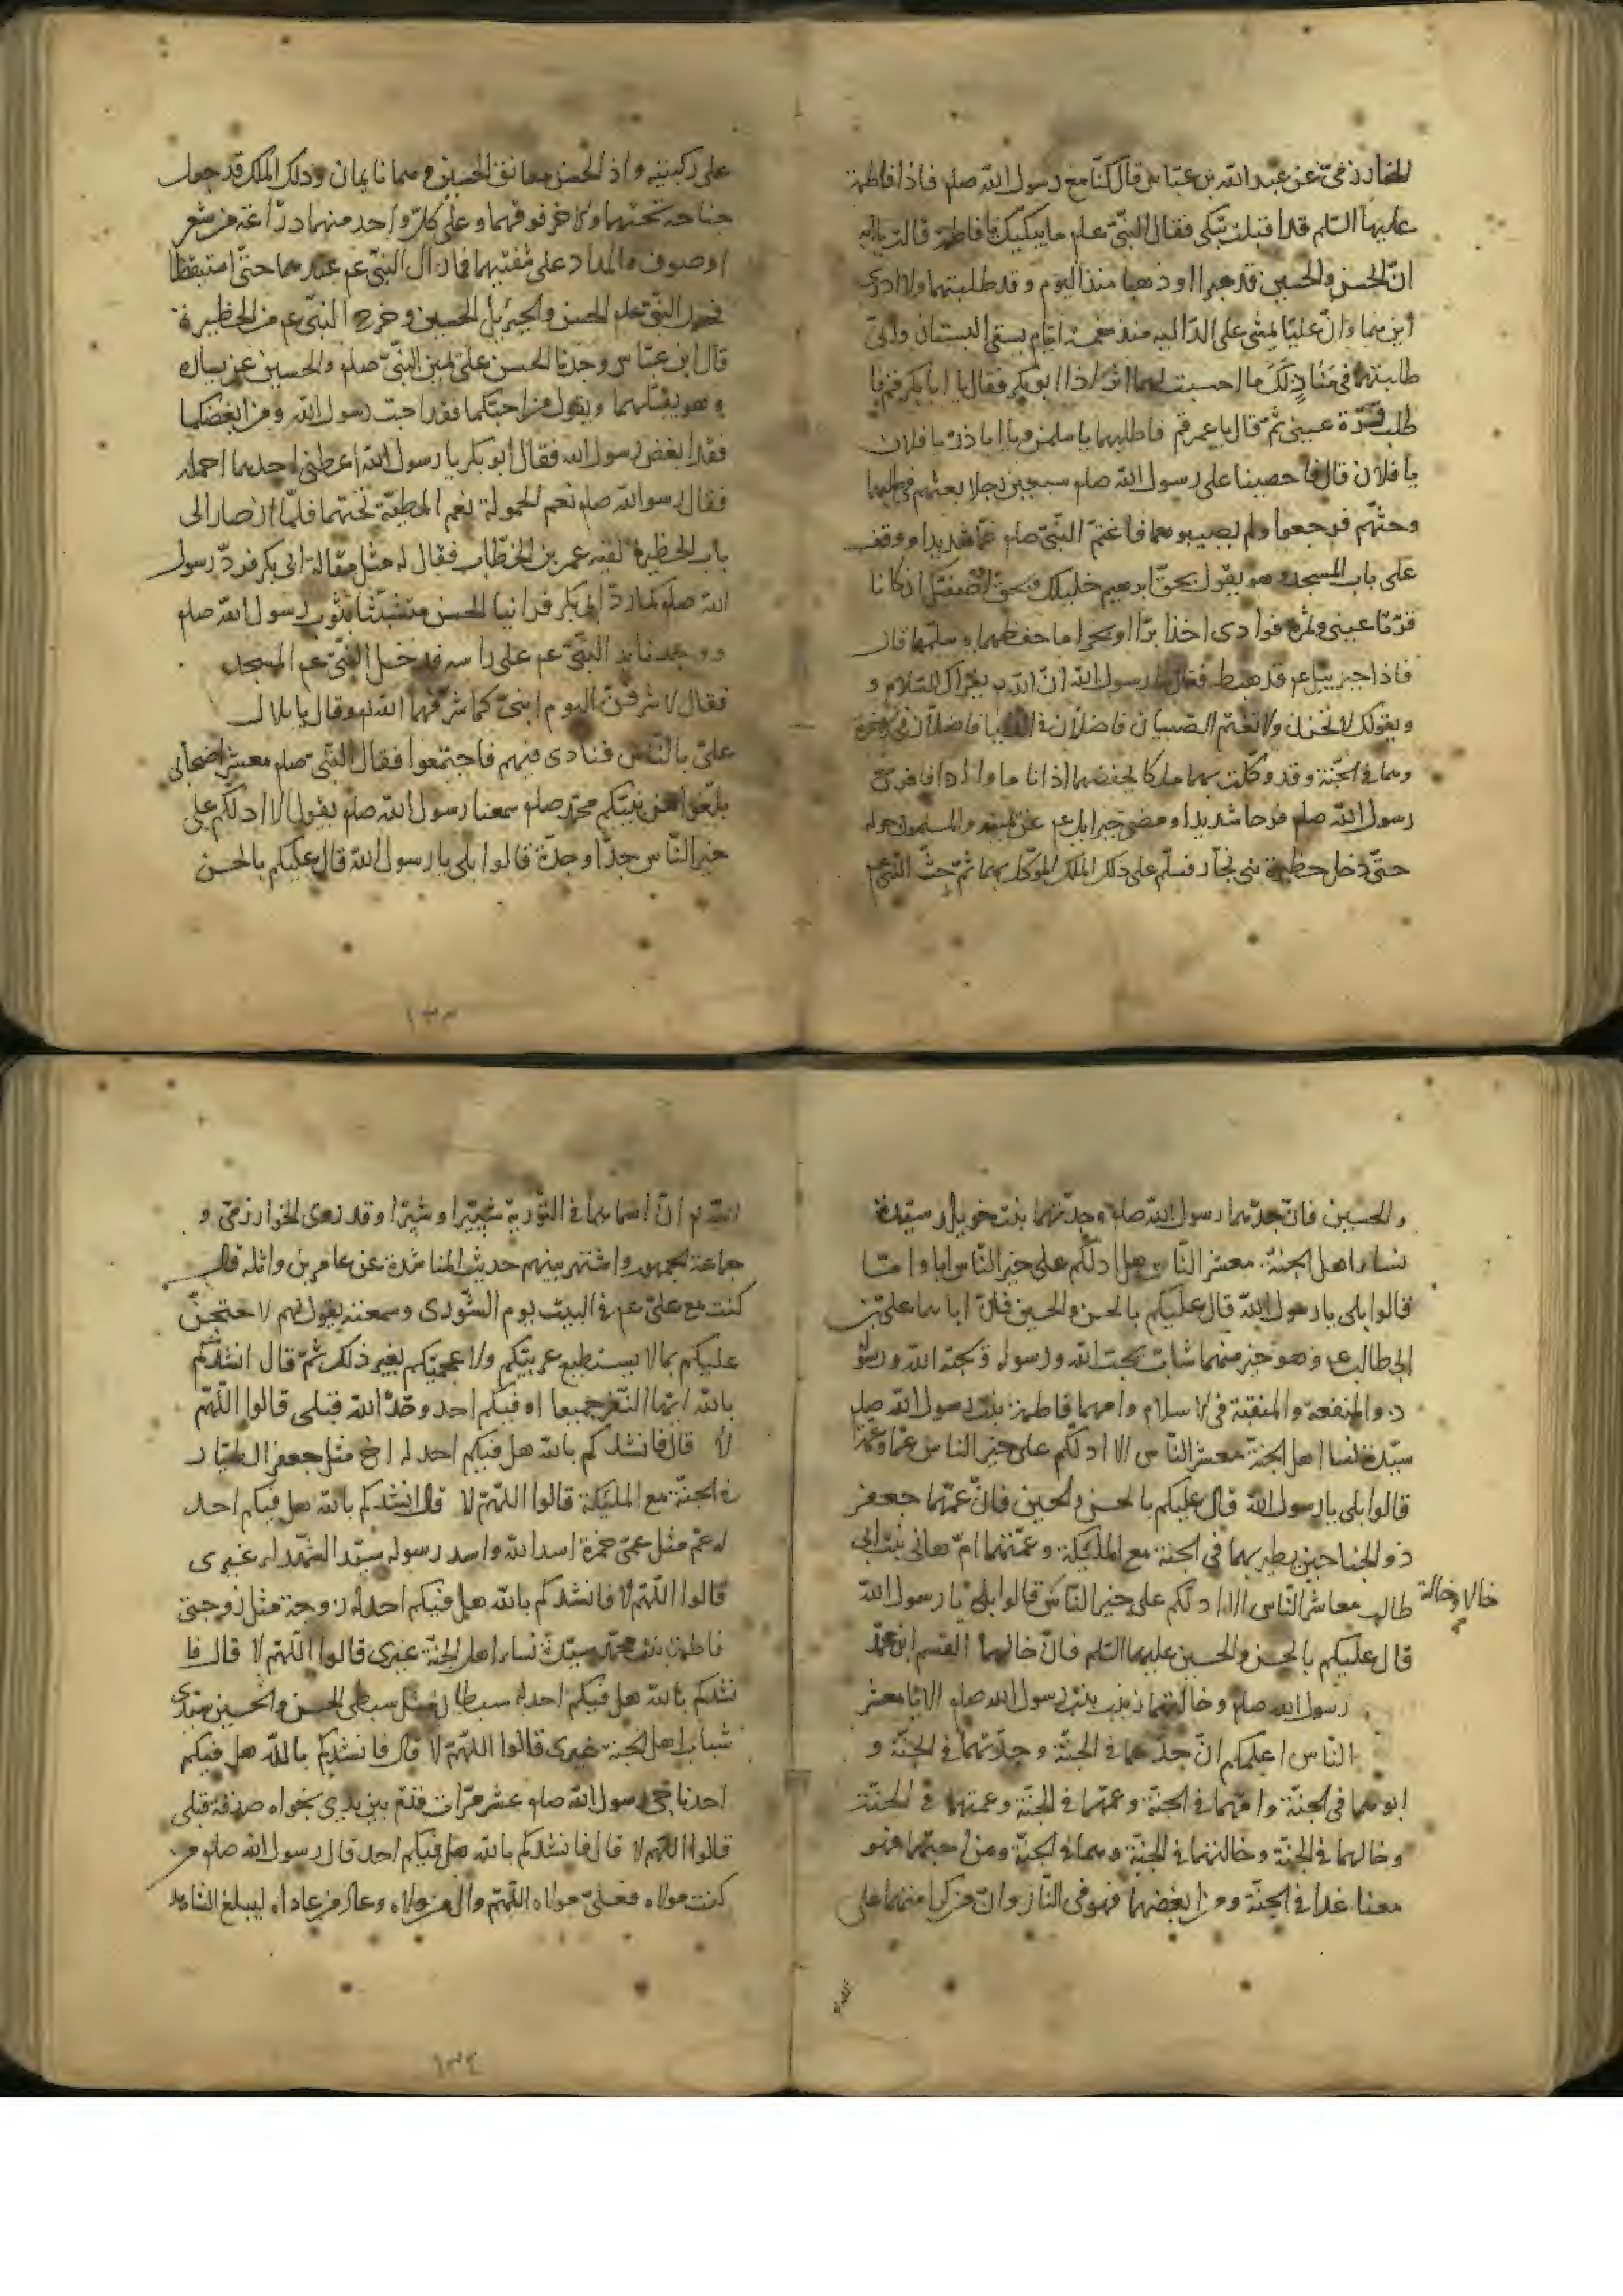 الخوارزمى عن عبد الله بن عباس قال كنا مع رسول الله صلم فاذا فاطمة
عليها السلم قد اقبلت تبكى فقال النبى صلم ما يبكيك يا فاطمة قالت يا ابه
ان الحسن والحسين قد عبرا او ذهبا منذ اليوم وقد طلبتهما ولا ادرى
اين هما وان عليا يمشى على الدالية منذ خمسة ايام يسقى البستان وانى
طلبتهما فى منازلك ما احسست لهما اثرا اذا ابو بكر فقال يا ابا بكر قم فا
طلب قرة عينى ثم قال يا عمر قم فاطلبهما يا سلمن ويا اباذر يا فلان
يا فلان قال فاحصينا على رسول الله صلم سبعين رجلا بعثهم فى طلبهما
وحثهم فرجعوا ولم يصيبوهما فاغتم النبى صلم غما شديدا ووقف
على باب المسجد وهو يقول بحق ابرهيم خليلك وبحق ادم صفيك ان كانا
قرتا عينى وثمرة فوادى اخذا برا او بحرا فاحفظهما وسلمهما قال
فاذا جبرئيل عم قد هبط فقال يا رسول الله ان الله يقرأك السلام و
ويقول لك لا تحزن ولا تغتم الصبيان فاضلان فى الدنيا فاضلان فى الاخرة
وهما فى الجنة وقد وكلت بهما ملكا يحفظهما اذا ناما واذا قاما ففرح
رسول الله صلم فرحا شديدا ومضى جبرايل عم عن يمينه والمسلمون حوله
حتى دخل حظيرة بنى نجار فسلم على ذلك الملك الموكل بهما ثم جثى النبى عم
على ركبتيه واذ الحسن معانق الحسين وهما نايمان وذلك الملك قد جعل
جناحه تحتهما والاخر فوقهما وعلى كل واحد منهما دراعة من شعر
او صوف والمداد على شفتيهما فما زال النبى عم عندهما حتى استيقظا
فحمل النبى صلم الحسن وجبرئيل الحسين وخرج النبى عم من الحظيرة
قال ابن عباس وجدنا الحسن على يمين النبى صلم والحسين عن يساره
وهو يقبلهما ويقول من احبكما فقد احب رسول الله ومن ابغضكما
فقد ابغض رسول الله فقال ابو بكر يا رسول الله اعطنى احدهما احمله
فقال رسول الله صلم نعم الحمولة نعم المطية تحتهما فلما ان صار الى
باب الحظيرة لقيه عمر بن الخطاب فقال له مثل مقالة ابى بكر فرد رسول
الله صلم كما رد ابى بكر فراينا الحسن متشبثا بثوب رسول الله صلم
ووجدنا يد النبى عم على راسه فدخل النبى عم المسجد
فقال لاشرفن اليوم ابنى كما شرفهما الله وقال يا بلال
على بالناس فنادى فيهم فاجتمعوا فقال النبى صلم معشر اصحابى
بلغوا عن نبيكم محمد صلم سمعنا رسول الله صلم يقول الا ادلكم على
خير الناس جدا وجدة قالوا بلى يا رسول الله قال عليكم بالحسن
١٣٣
والحسين فان جدهما رسول الله صلم وجدتهما بنت خويلد سيدة
نساء اهل الجنة معشر الناس هل ادلكم على خير الناس ابا واما
قالوا بلى يا رسول الله قال عليكم بالحسن والحسين فان اباهما على بن
ابى طالب عم وهو خير منهما شاب يحب الله ورسوله ويحبه الله ورسوله
ذو المنفعة والمنقبة فى الاسلام وامهما فاطمة بنت رسول الله صلم
سيدة نسا اهل الجنة معشر الناس الا ادلكم على خير الناس عما وعمة
قالوا بلى يا رسول الله قال عليكم بالحسن والحسين فان عمهما جعفر
ذو الجناحين يطير بهما فى الجنة مع المليكة وعمتهما ام هانى بنت ابى
طالب معاشر الناس الا ادلكم على خير الناس قالوا بلى يا رسول الله
خالا وخالة
قال عليكم بالحسن والحسين عليهما السلم فان خالهما القسم ابن محمد
رسول الله صلم وخالتهما زينب بنت رسول الله صلم الا يا معشر
الناس اعلمكم ان جدهما فى الجنة وجدتهما فى الجنة و
ابوهما فى الجنة وامهما فى الجنة وعمهما فى الجنة وعمتهما فى الجنة
وخالهما فى الجنة وخالتهما فى الجنة وهما فى الجنة ومن احبهما فهو
معنا غدا فى الجنة ومن ابغضهما فهو فى النار وان من كرامتهما على
الله
الله ان اسماهما فى التورية شبيرا وشبرا وقد روى الخوارزمى و
جماعة الجمهور واشتهر بينهم حديث المناشدة عن عامر بن واثله قال
كنت مع على عم فى البيت يوم الشورى وسمعته يقول لهم لا حتجن
عليكم بما لا يستطيع عربيكم ولا عجميكم بغير ذلك ثم قال انشدكم
بالله ايها النفر جميعا افيكم احد وحد الله قبلى قالوا اللهم
لا قال فانشدكم بالله هل فيكم احد له اخ مثل جعفر الطيار
فى الجنة مع المليكة قالوا اللهم لا قال انشدكم بالله هل فيكم احد
له عم مثل عمى حمزة اسد الله واسد رسوله سيد الشهداء غيرى
قالوا اللهم لا فانشدكم بالله هل فيكم احد له زوجة مثل زوجتى
فاطمة بنت محمد سيدة نساء اهل الجنة غيرى قالوا اللهم لا قال فا
نشدكم بالله هل فيكم احد له سبطان مثل سبطى الحسن والحسين سيدى
شباب اهل الجنة غيرى قالوا اللهم لا قال فانشدكم بالله هل فيكم
احد ناجى رسول الله صلم عشر مرات قدم بين يدى نجواه صدقة قبلى
قالوا اللهم لا قال فانشدكم بالله هل فيكم احد قال رسول الله صلم من
كنت مولاه فعلى مولاه اللهم وال من والاه وعاد من عاداه ليبلغ الشاهد
١٣٤